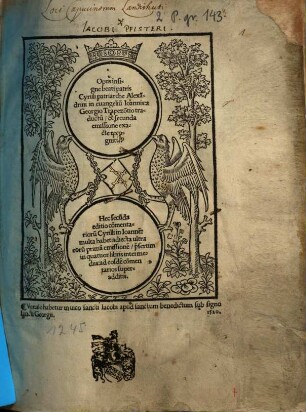 Loci Capucinorum Landishuti
2 P. gr. 143
IACOBI PFISTERI.
1.
Opus insi
gne beati patris
Cyrilli patriarche Alexã
drie in euangeliũ Ioannis: a
Georgio Trapezõtio tra
ductũ: & secunda
emissione exa
cte recog
nitũ.
Hec secũda
editio cõmenta
riorũ Cyrilli in Ioannẽ:
multa habet adiecta vltra
eorũ primã emissionẽ: presertim
in quatuor libris interme
diis: ad eosdẽ cõmen
tarios super
additis.
Venalis habetur in vico sancti Iacobi apud sanctum benedictum sub signo
sancti Georgii.
1520.
1245